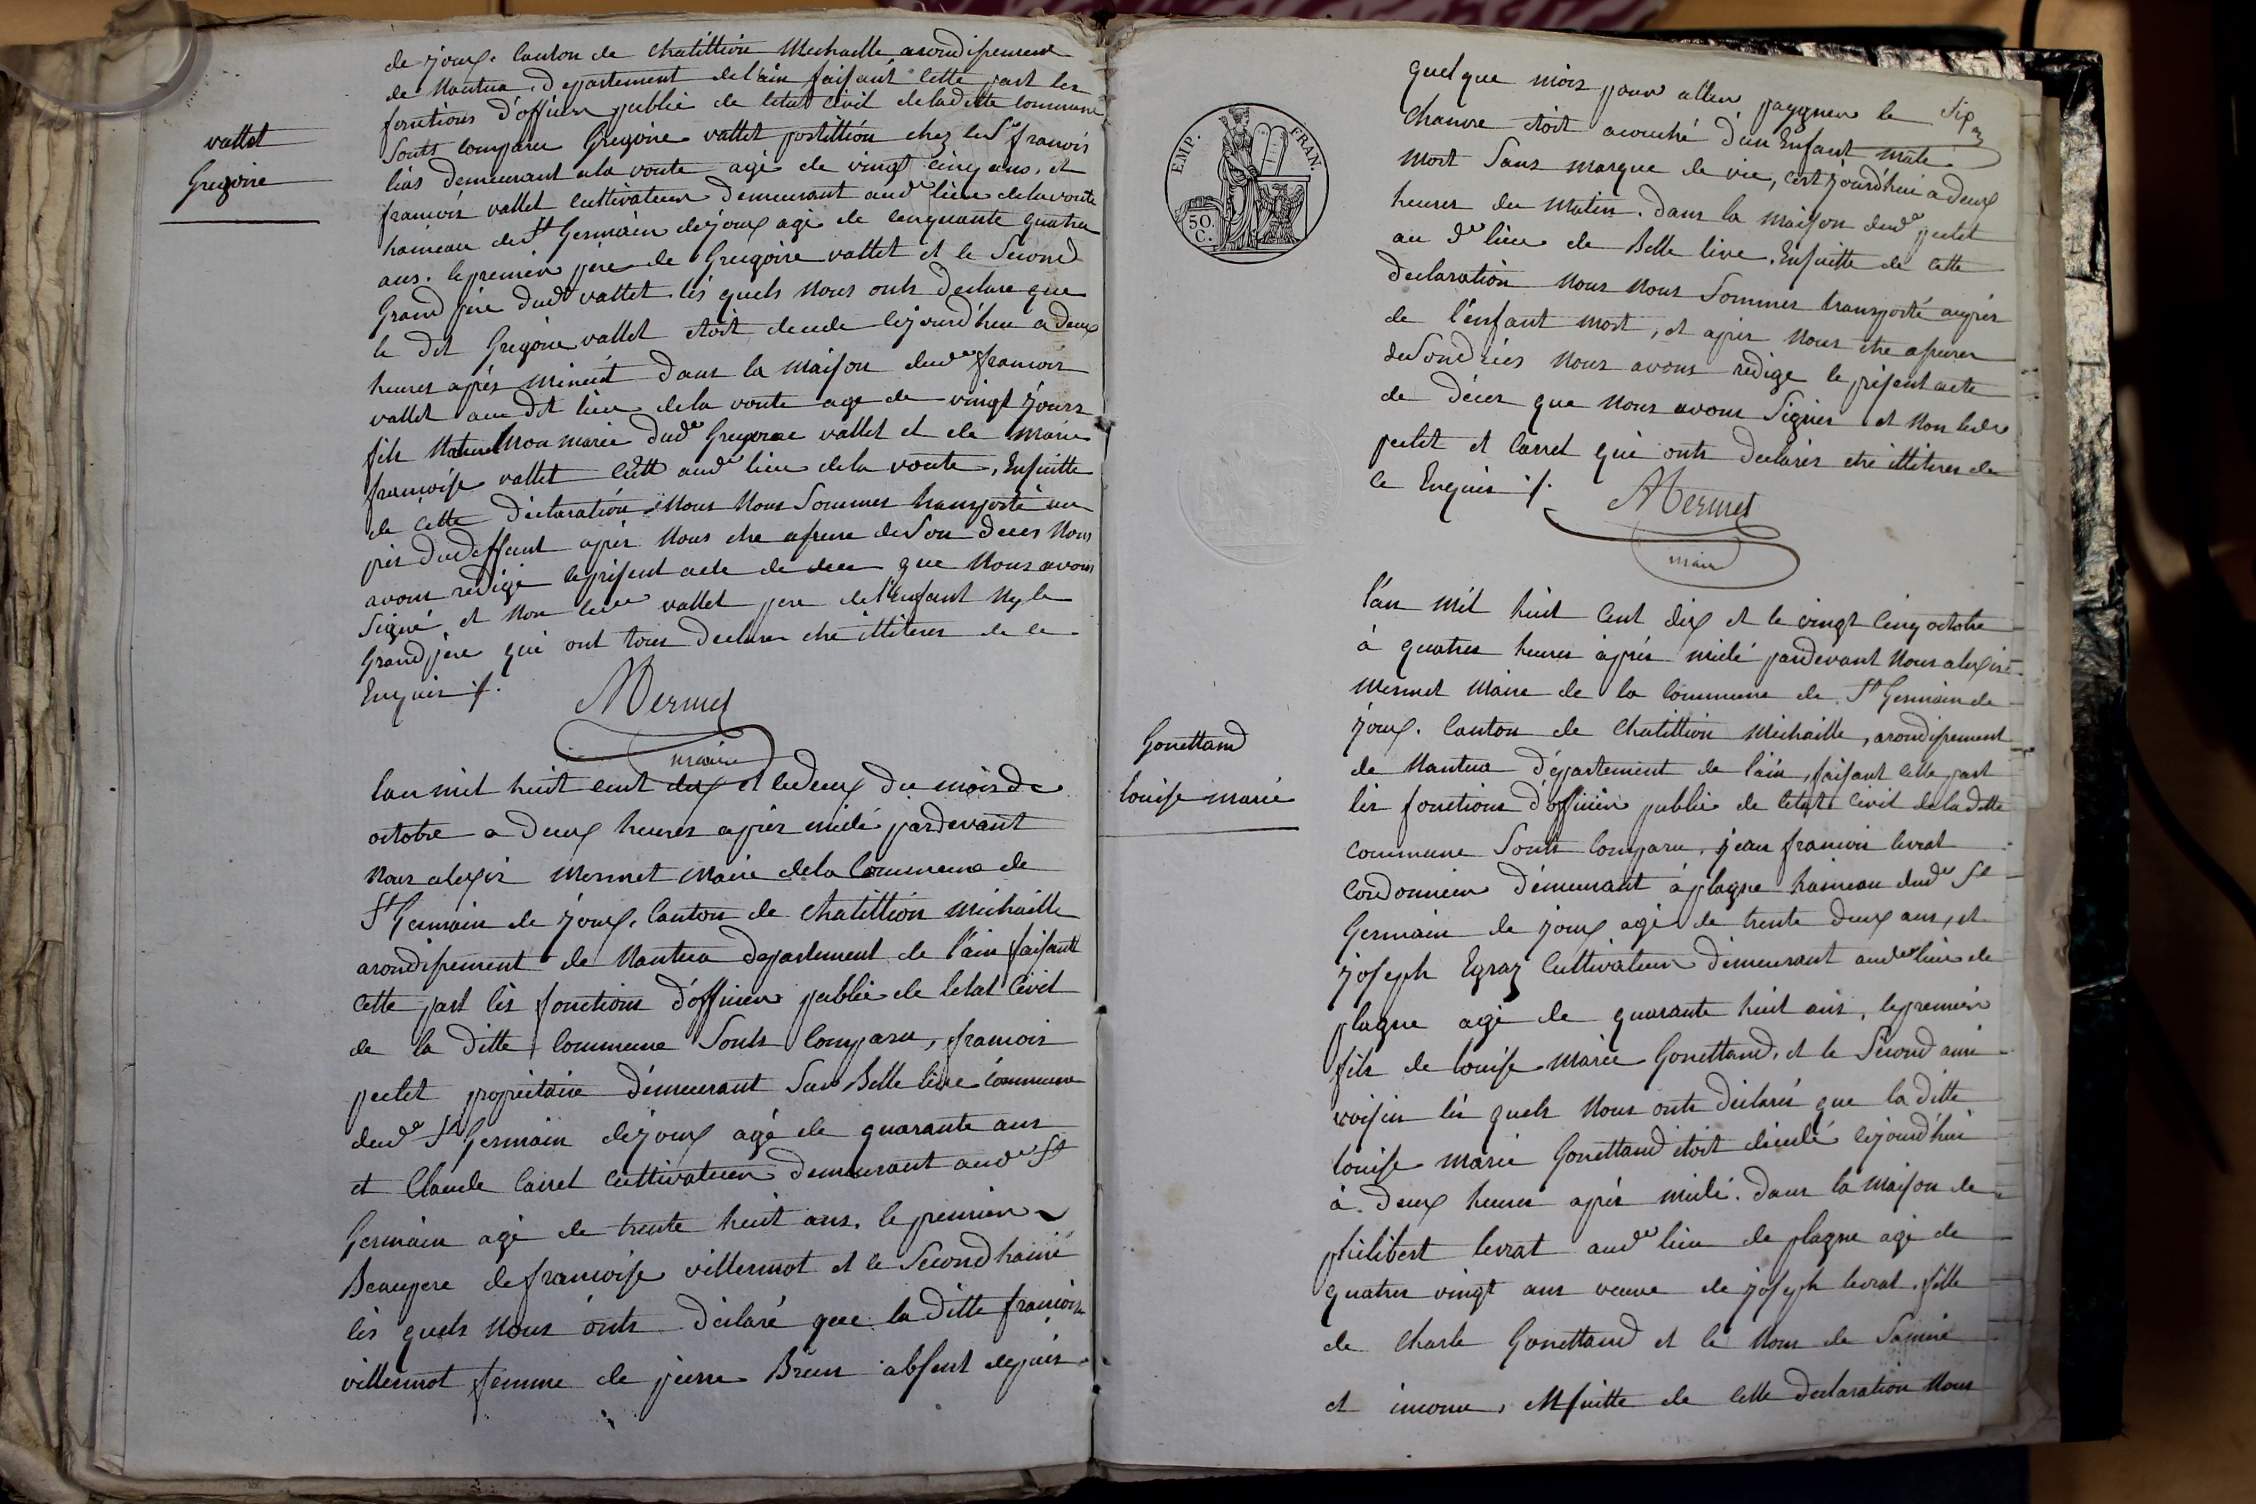 de joux. Canton de chatillion Michaille arondissement
de Nantua, Departement de l'ain faisant cette part les
fonctions d'officier public de letat civil de la ditte commune
Sonts comparu Gregoire vallet postillion chez le Sr francois
lias demeurant a la voute agé de vingt cinq ans, et
francois vallet cultivateur demeurant audt lieu de la voute
haimeau de St Germain de joux agé de cenquante quatre
ans. le premier pere de Gregoire vallet et le Second
Grand pere dudt vallet les quels Nous onts declare que
le dit Gregoire vallet etoit decede cejourd'hui a deux
heures aprés minuit dans la maison dudt francois
vallet au dit lieu de la voute age de vingt jours
fils Naturel Non marie dudt Gregoire vallet et de marie
francoise vallet cultt audt lieu de la voute, Ensuitte
de cette declaration Nous Nous Sommes transporté au
prés du deffunt aprés Nous etre assure de Son deces Nous
avons redigé le present acte de deces que Nous avons
Signé et Non ledt vallet pere de l'enfant Ny le
Grand pere qui ont tous declare etre illiteres de ce
Enquis ./.
AMermet
maire
vallet
Gregoire
lan mil huit cent dix et le deux du mois de
octobre a deux heures aprés midi pardevant
Nous alexis Mermet Maire de la Commune de
St Germain de joux, Canton de chatillion michaille
arondissement de Nantua departement de l'ain faisant
cette part lés fonctions d'officier public de letat civil
de la ditte commune Sonts comparu, francois
pectet propriétaire démeurant Sur Belle live commune
dudt St Germain de joux agé de quarante ans
et Claude Carret cultivateur demeurant audt St
Germain agé de trente huit ans. le premier
Beaupere de francoise villermot et le Second haimé
lés quels Nous onts déclaré que la ditte francoise
villermot femme de pierre Brun absent depuis
EMP. FRAN.
50.
C.
Six
quelque mois pour aller paygner le
Chanvre étoit acouché d'un Enfant mâle
mort Sans marque de vie, cejourd'hui a deux
heures du matin. dans la maison dudt pectet
au dt lieu de Belle live. Ensuitte de cette
declaration Nous Nous Sommes transporté auprés
de l'enfant mort, et aprés Nous etre assurer
de Son déces Nous avons rédigé le présent acte
de décés que Nous avons Signer et Non lesdts
pectet et Carret qui onts declarés etre illiteres de
ce Enquis ./.
AMermet
maire
Gonettand
louise marie
l'an mil huit cent dix et le vingt cinq octobre
à quatres heures aprés midi pardevant Nous alexis
Mermet Maire de la Commune de St Germain de
joux. Canton de Chatillion Michaille, arondissement
de Nantua département de l'ain, faisant cette part
lés fonctions d'officier public de letat civil de la ditte
commune Sonts comparu, jean francois levrat
Cordonnier démeurant à plagne haimeau dudt St
Germain de joux agé de trente deux ans, et
joseph Egraz Cultivateur démeurant audt lieu de
plagne agé de quarante huit ans, le premier
fils de louise marie Gonettand, et le Second ami
voisin lés quels Nous onts déclarés que la ditte
louise marie Gonettand étoit décédé cejourd'hui
à deux heures aprés midi. dans la maison de
philibert levrat audt lieu de plagne agé de
quatres vingt ans veuve de joseph levrat, fille
de charle Gonettand et le Nom de Samére
et inconu, ensuitte de cette declaration Nous